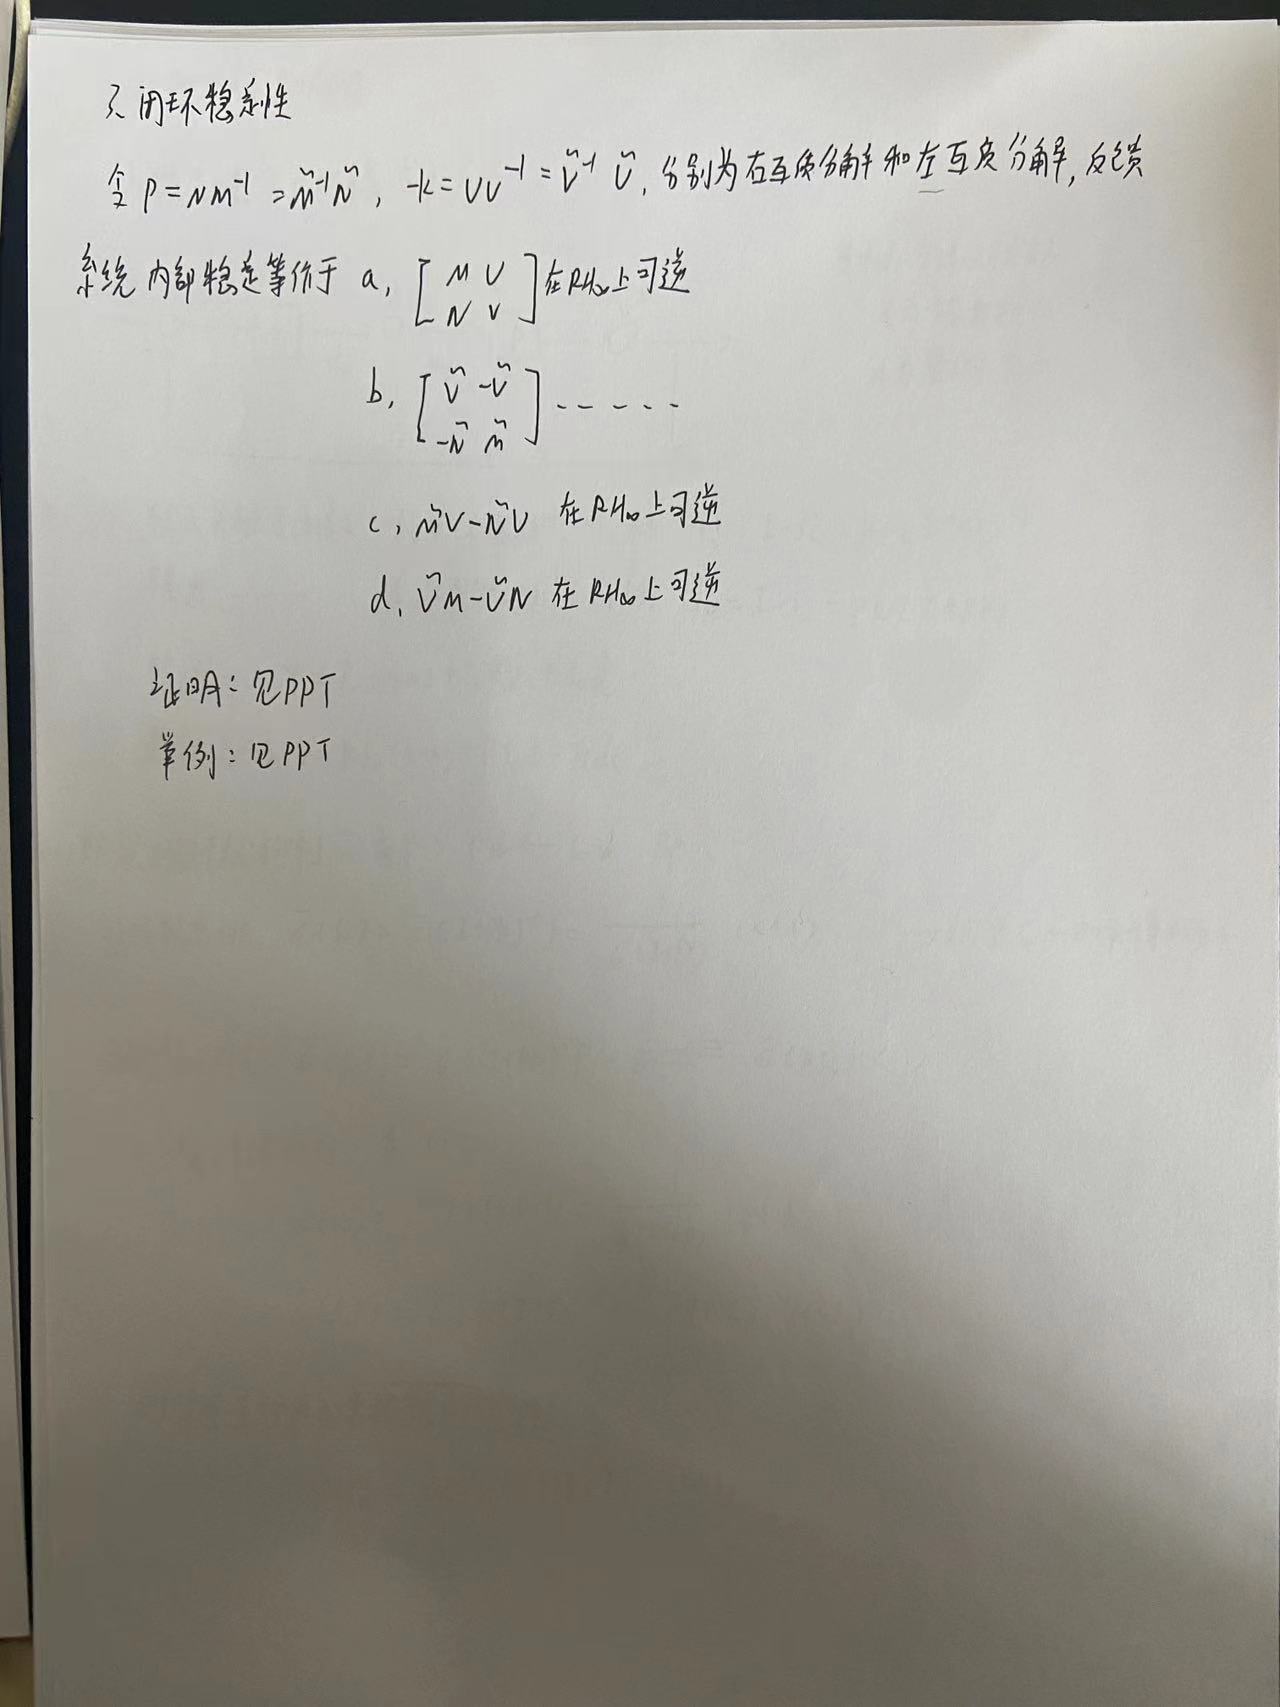 3. 闭环稳定性
令 P = NM⁻¹ = M̃⁻¹Ñ, -K = UV⁻¹ = Ṽ⁻¹Ũ, 分别为右互质分解和左互质分解, 反馈
系统内部稳定等价于 a, [M U; N V] 在RH∞上可逆
b, [Ṽ -Ũ; -Ñ M̃] - - - - -
c, M̃V-ÑU 在RH∞上可逆
d, ṼM-ŨN 在RH∞上可逆
证明: 见PPT
举例: 见PPT